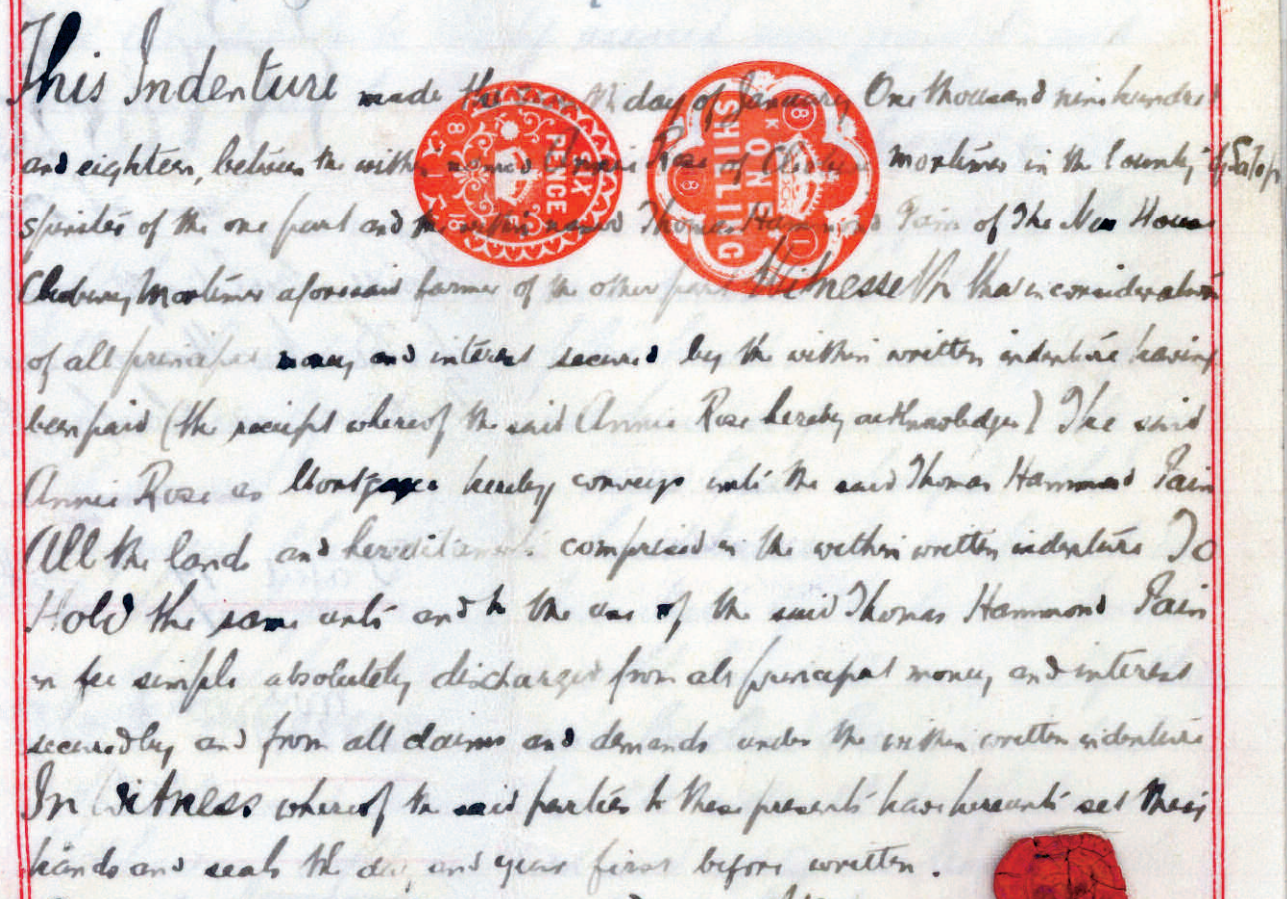 This Indenture made the day of January One thousand nine hundred
and eighteen, between the within named Annie Rose of Cleobury Mortimer in the County of Salop
spinster of the one part and the within named Thomas Hammond Pain of The New House
Cleobury Mortimer aforesaid farmer of the other part Witnesseth that in consideration
of all principal money and interest secured by the within written indenture having
been paid (the receipt whereof the said Annie Rose hereby acknowledges) The said
Annie Rose as Mortgagee hereby conveys unto the said Thomas Hammond Pain
All the land and hereditaments comprised in the within written indenture To
Hold the same unto and to the use of the said Thomas Hammond Pain
in fee simple absolutely discharged from all principal money and interest
secured by and from all claims and demands under the within written indenture
In Witness whereof the said parties to these presents have hereunto set their
hands and seals the day and year first before written.
SIX PENCE
ONE SHILLING